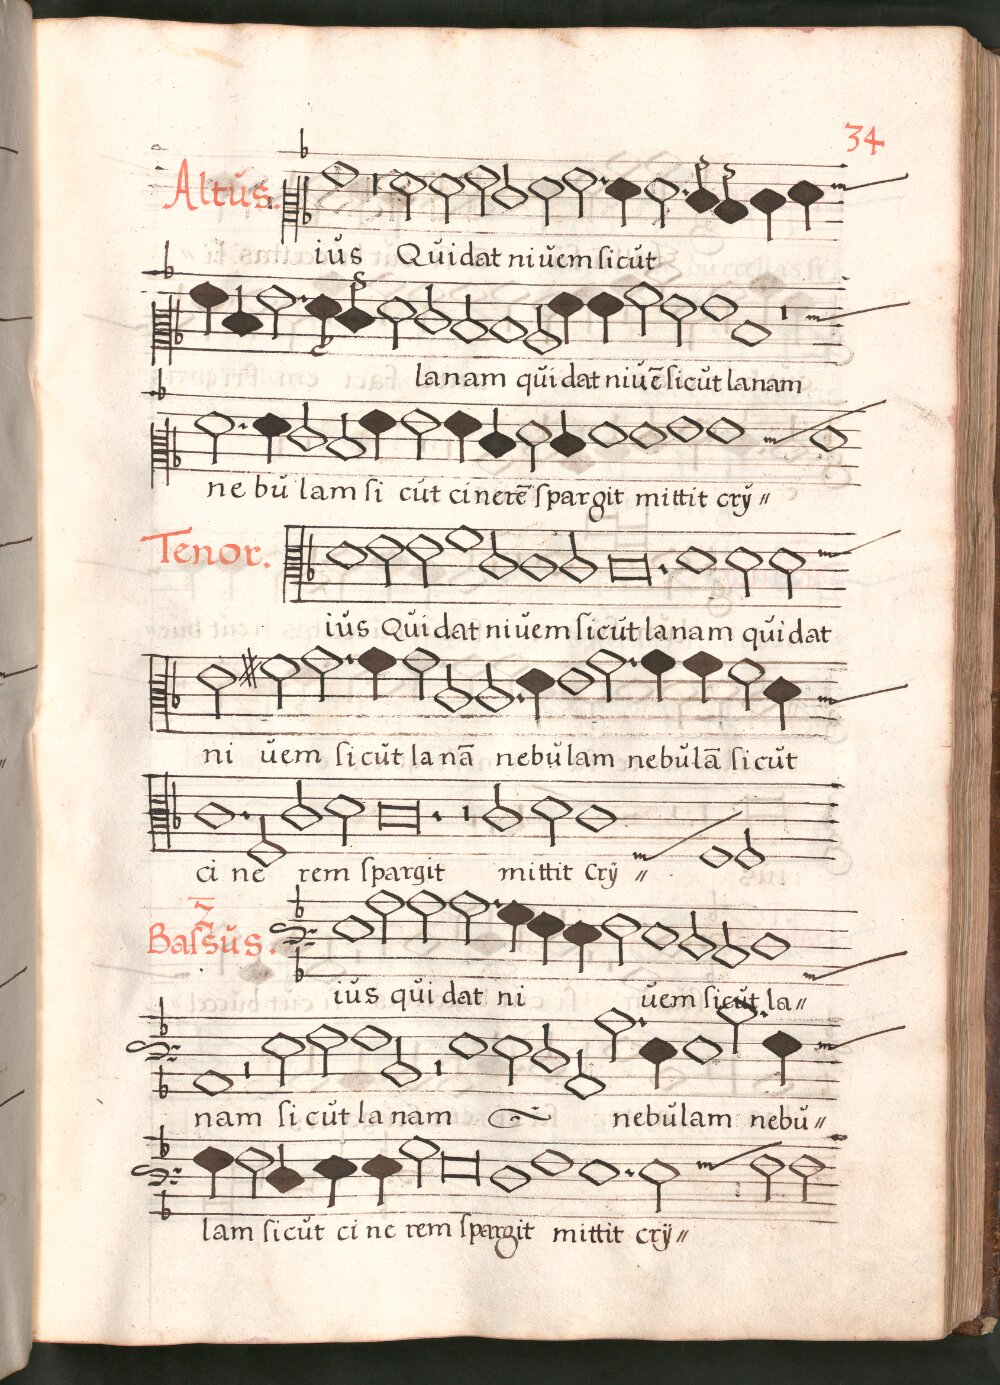 34
Altus.
ius Qui dat niuem sicut
lanam qui dat niuē sicut lanam
ne bu lam si cut cinerē spargit mittit cry〃
Tenor.
ius Qui dat niuem sicut lanam qui dat
ni uem sicut la nā nebulam nebulā sicut
ci ne rem spargit mittit cry〃
2
Bassus.
ius qui dat ni uem sicut la〃
nam si cut la nam nebulam nebu〃
lam sicut ci ne rem spargit mittit cry〃